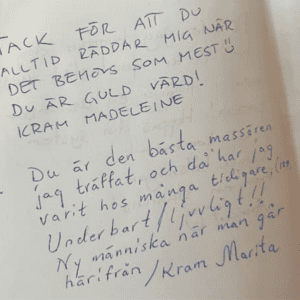 TACK FÖR ATT DU
ALLTID RÄDDAR MIG NÄR
DET BEHÖVS SOM MEST
DU ÄR GULD VÄRD!
KRAM MADELEINE
Du är den bästa massören
jag träffat, och då har jag
varit hos många tidigare,
Underbart/ljuvligt!!
Ny människa när man går
härifrån/Kram Marita